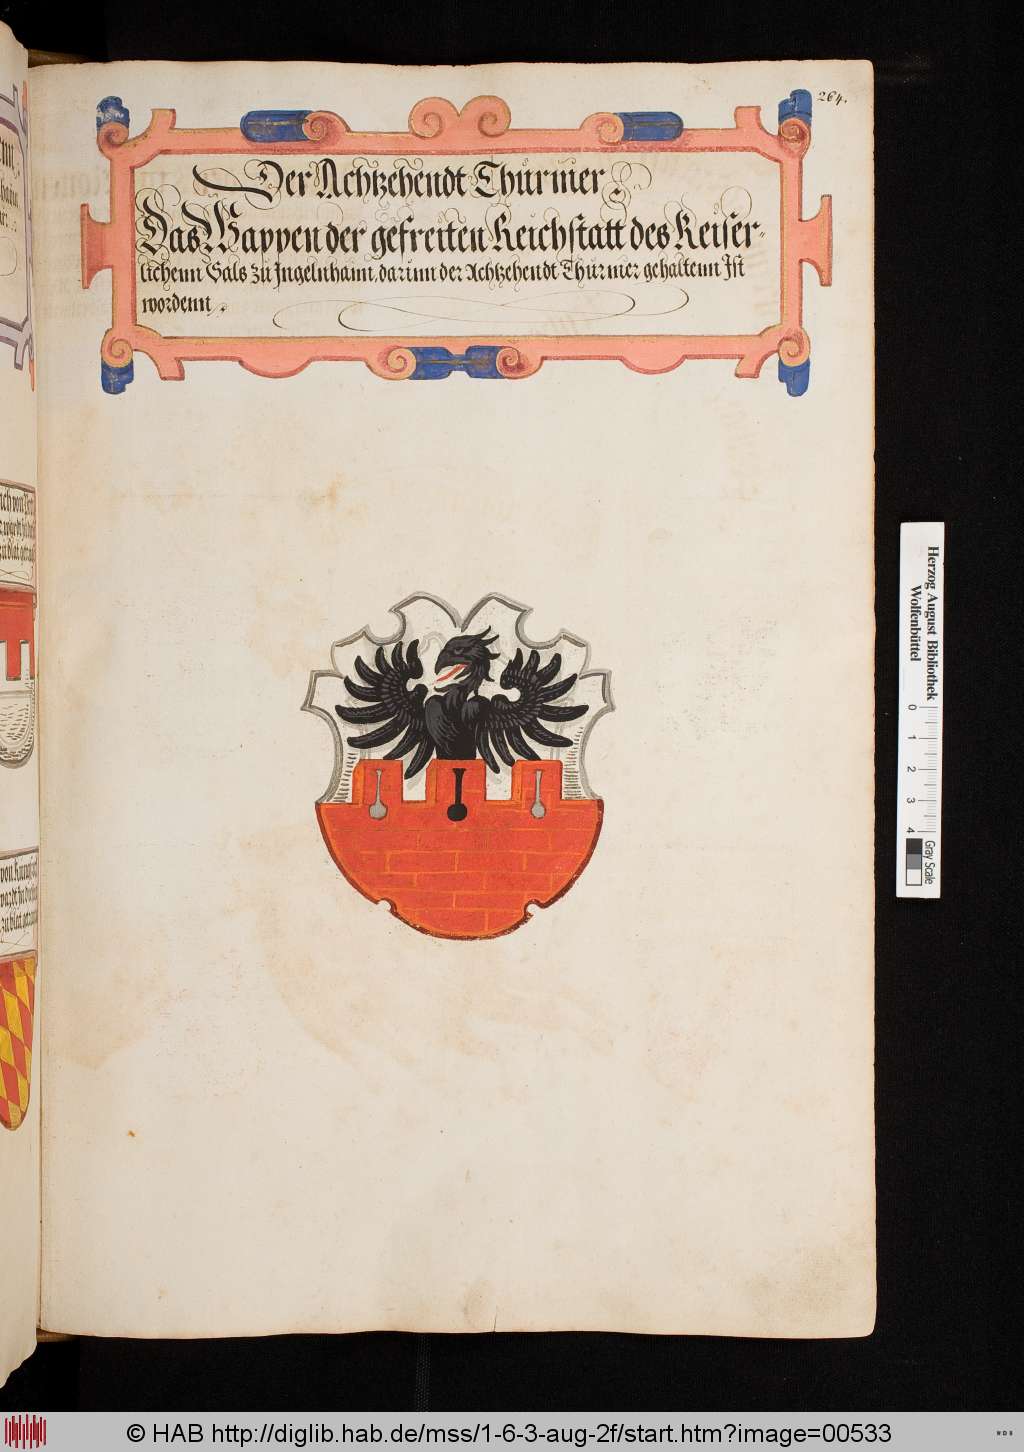 264.
Der Achtzehendt Thurnier.
Das Wappen der gefreiten Reichstatt des Keiser-
lichenn Sals zu Ingelnhaim, darinn der Achtzehendt Thurnier gehaltenn Ist
wordenn.
Herzog August Bibliothek
Wolfenbüttel
0 1 2 3 4
Gray Scale
© HAB http://diglib.hab.de/mss/1-6-3-aug-2f/start.htm?image=00533